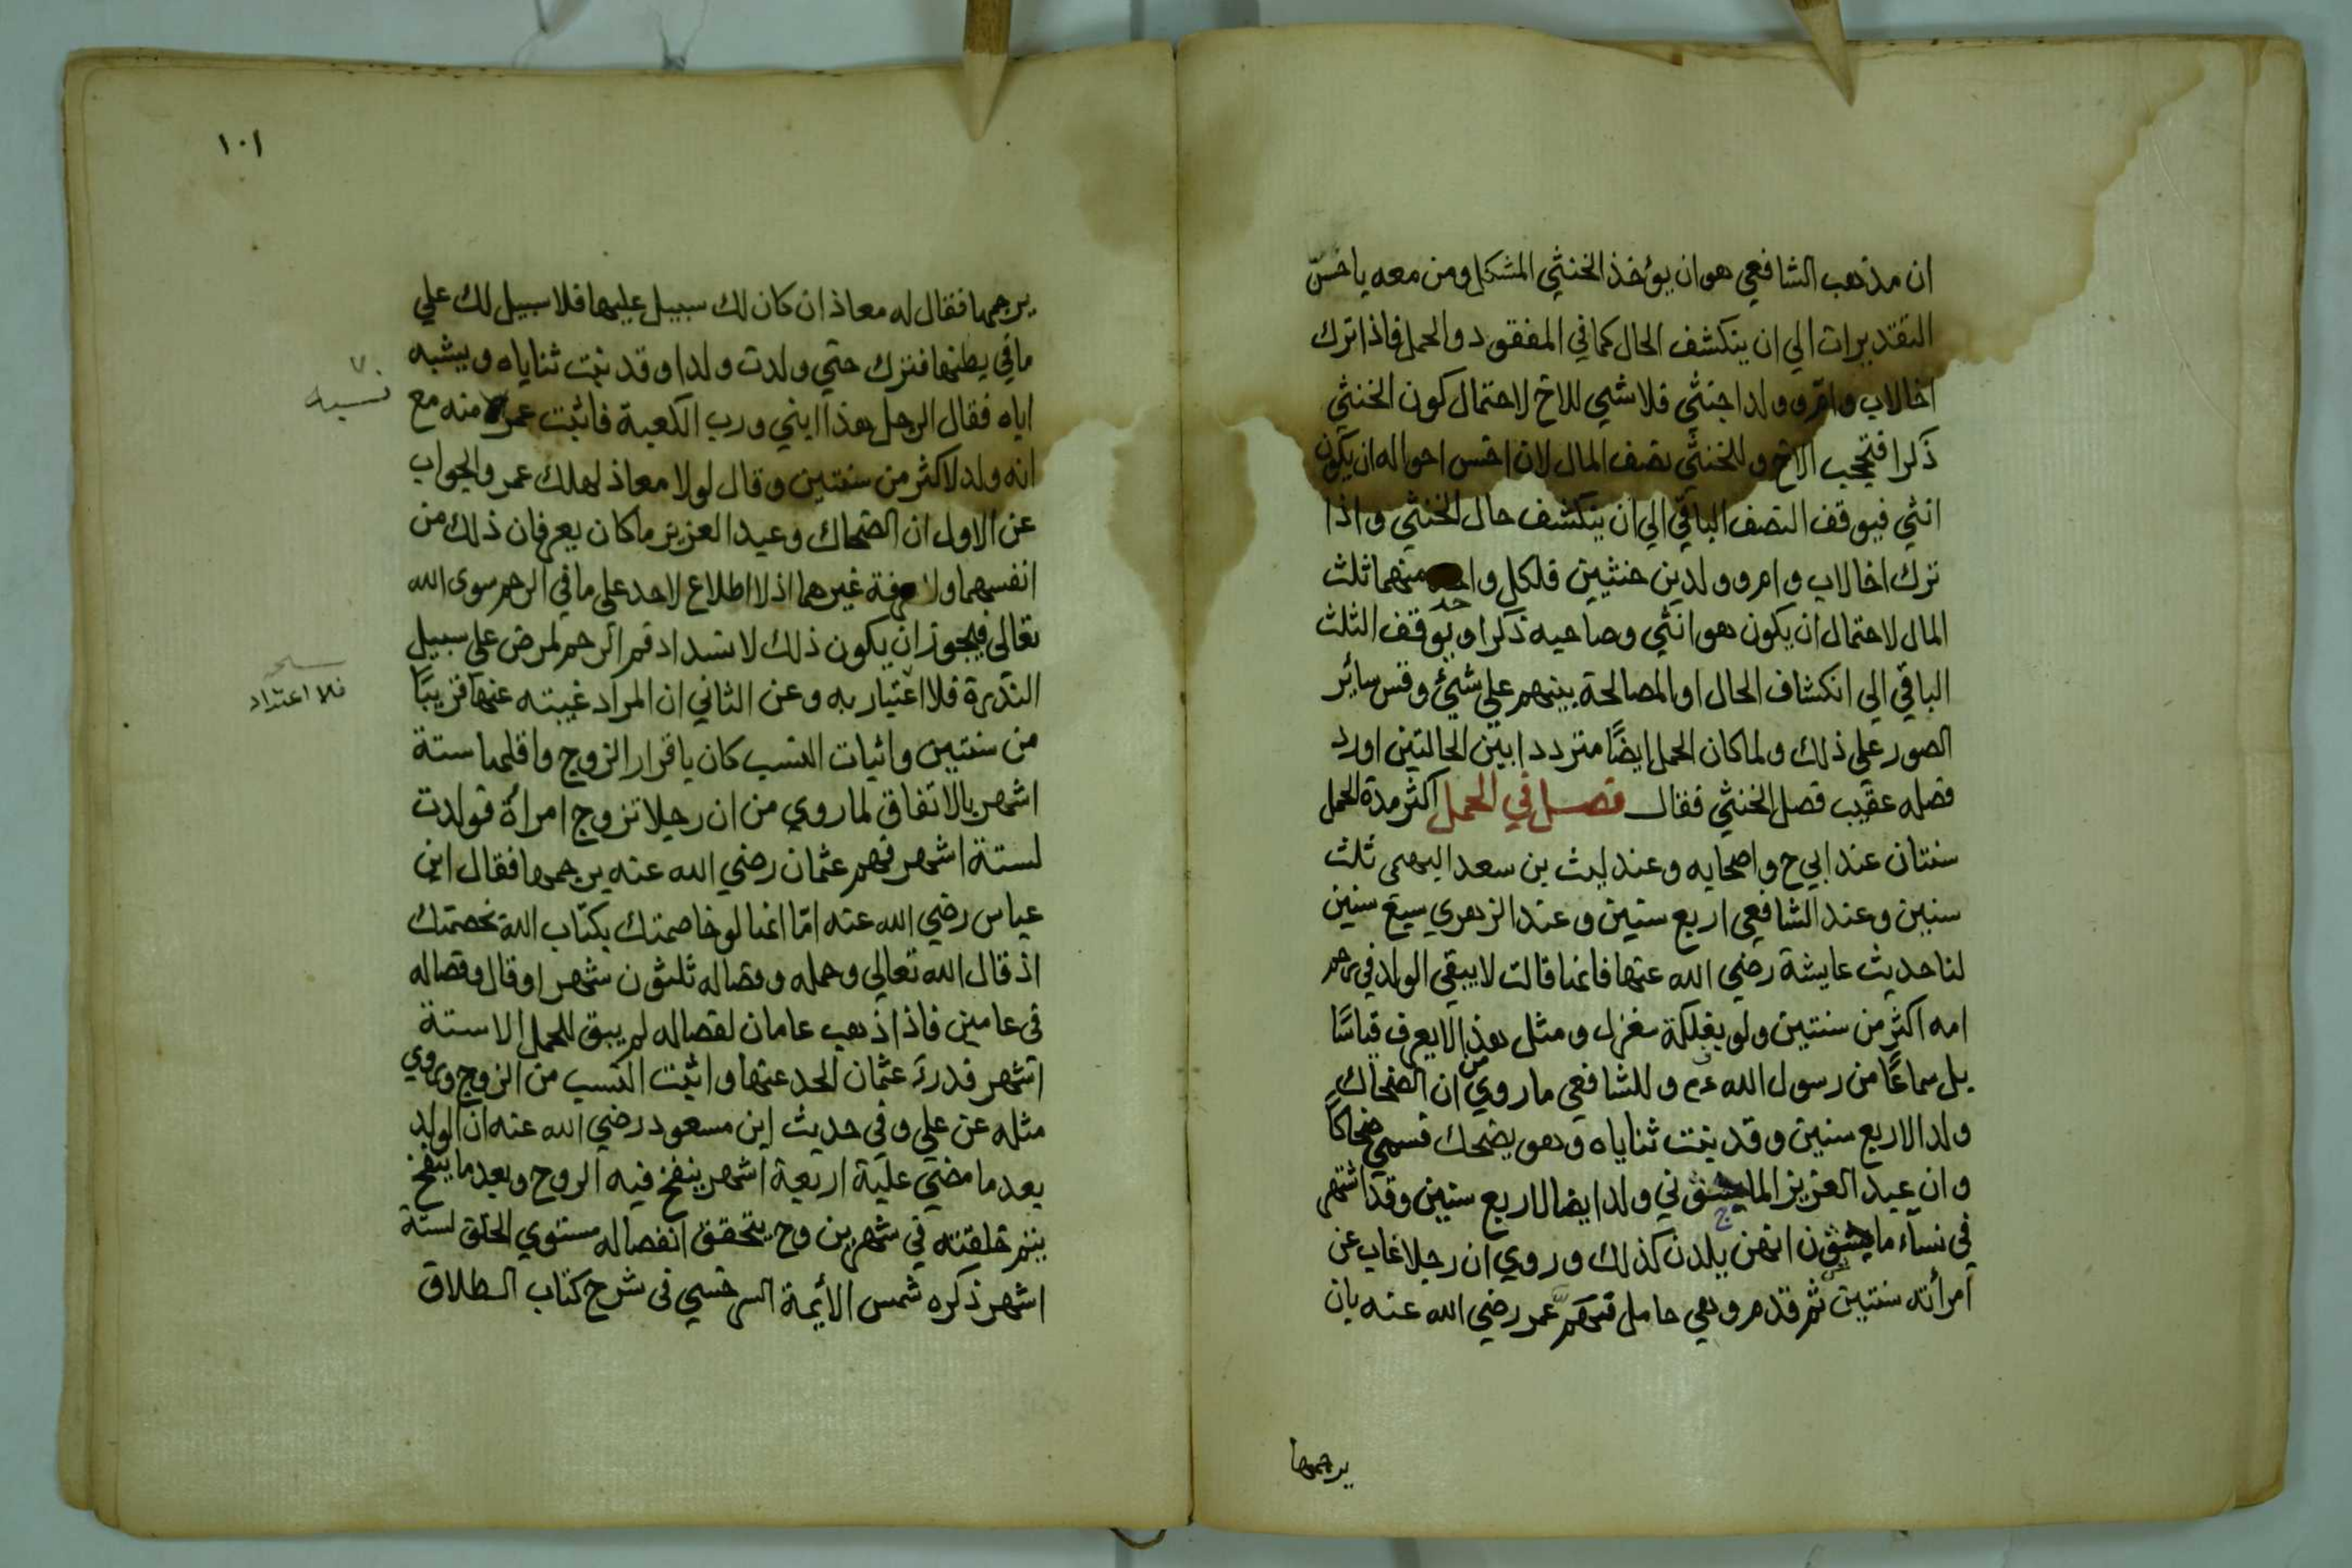 ان مذهب الشافعي هو ان يؤخذ الخنثي المشكل ومن معه باخسّ
التقديرات الي ان ينكشف الحال كما في المفقود والحمل فاذا ترك
اخا لاب وام وولدا خنثي فلا شيي للاخ لاحتمال كون الخنثي
ذكرا فتحجب الاخ وللخنثي نصف المال لان اخس احواله ان يكون
انثي فيوقف النصف الباقي الي ان ينكشف حال الخنثي واذا
ترك اخا لاب وام وولدين خنثيين فلكل واحد منهما ثلث
المال لاحتمال ان يكون هو انثي وصاحبه ذكرا ويوقف الثلث
الباقي الي انكشاف الحال او المصالحة بينهم علي شيئ وقس سائر
الصور علي ذلك ولما كان الحمل ايضًا مترددا بين الحالتين اورد
فصله عقيب فصل الخنثي فقال فصل في الحمل اكثر مدة الحمل
سنتان عند ابي ح واصحابه وعند ليث بن سعد الفهمى ثلث
سنين وعند الشافعي اربع سنين وعند الزهري سبع سنين
لنا حديث عايشة رضي الله عنها فانها قالت لا يبقي الولد في رحم
امه اكثر من سنتين ولو بفلكة مغزل ومثل هذا لا يعرف قياسًا
بل سماعًا من رسول الله ءم وللشافعي ما روي من ان الضحاك
ولد لاربع سنين وقد نبتت ثناياه وهو يضحك فسمي ضحاكًا
وان عبد العزيز الماجشوني ولد ايضا لاربع سنين وقد اشتهر
في نساء ماجشون انهن يلدن كذلك وروي ان رجلا غاب عن
امرأته سنتين ثم قدم وهي حامل فهمّ عمر رضي الله عنه بان
يرجمها
١٠١
يرجمها فقال له معاذ ان كان لك سبيل عليها فلا سبيل لك علي
ما في بطنها فترك حتي ولدت ولدا وقد نبتت ثناياه ويشبه
اياه فقال الرجل هذا ابني ورب الكعبة فاثبت عمر منه مع
انه ولد لاكثر من سنتين وقال لولا معاذ لهلك عمر والجواب
عن الاول ان الضحاك وعبد العزيز ما كان يعرفان ذلك من
انفسهما ولا عرفة غيرهما اذ لا اطلاع لاحد علي ما في الرحم سوى الله
تعالى فيجوز ان يكون ذلك لانسداد فم الرحم لمرض علي سبيل
الندرة فلا اعتبار به وعن الثاني ان المراد غيبته عنها قريبًا
من سنتين واثبات النسب كان باقرار الزوج واقلها ستة
اشهر بالاتفاق لما روي من ان رجلا تزوج امرأة فولدت
لستة اشهر فهم عثمان رضي الله عنه يرجمها فقال ابن
عباس رضي الله عنه امّا انها لو خاصمتك بكتاب الله نخصمتك
اذ قال الله تعالي وحمله وفصاله ثلثون شهرا وقال وفصاله
في عامين فاذا ذهب عامان لفصاله لم يبق للحمل الا ستة
اشهر فدرء عثمان الحد عنها واثبت النسب من الزوج وروي
مثله عن علي وفي حديث ابن مسعود رضي الله عنه ان الولد
بعد ما مضي علية اربعة اشهر ينفخ فيه الروح وبعد ما ينفخ
يتم خلقته في شهرين وح يتحقق انفصاله مستوي الخلق لستة
اشهر ذكره شمس الأئمة السرخسي في شرح كتاب الطلاق
نسبه
فلا اعتداد